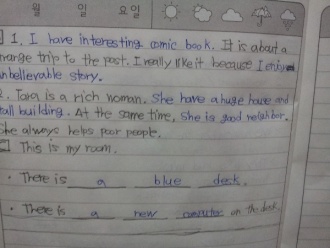 월 일 요일
1. I have interesting comic book. It is about a
trip to the past. I really like it because I enjoy
unbelievable story.
2. Tara is a rich woman. She have a huge house and
tall building. At the same time, she is good neighbor.
She always helps poor people.
This is my room.
• There is a blue desk.
• There is a new computer on the desk.